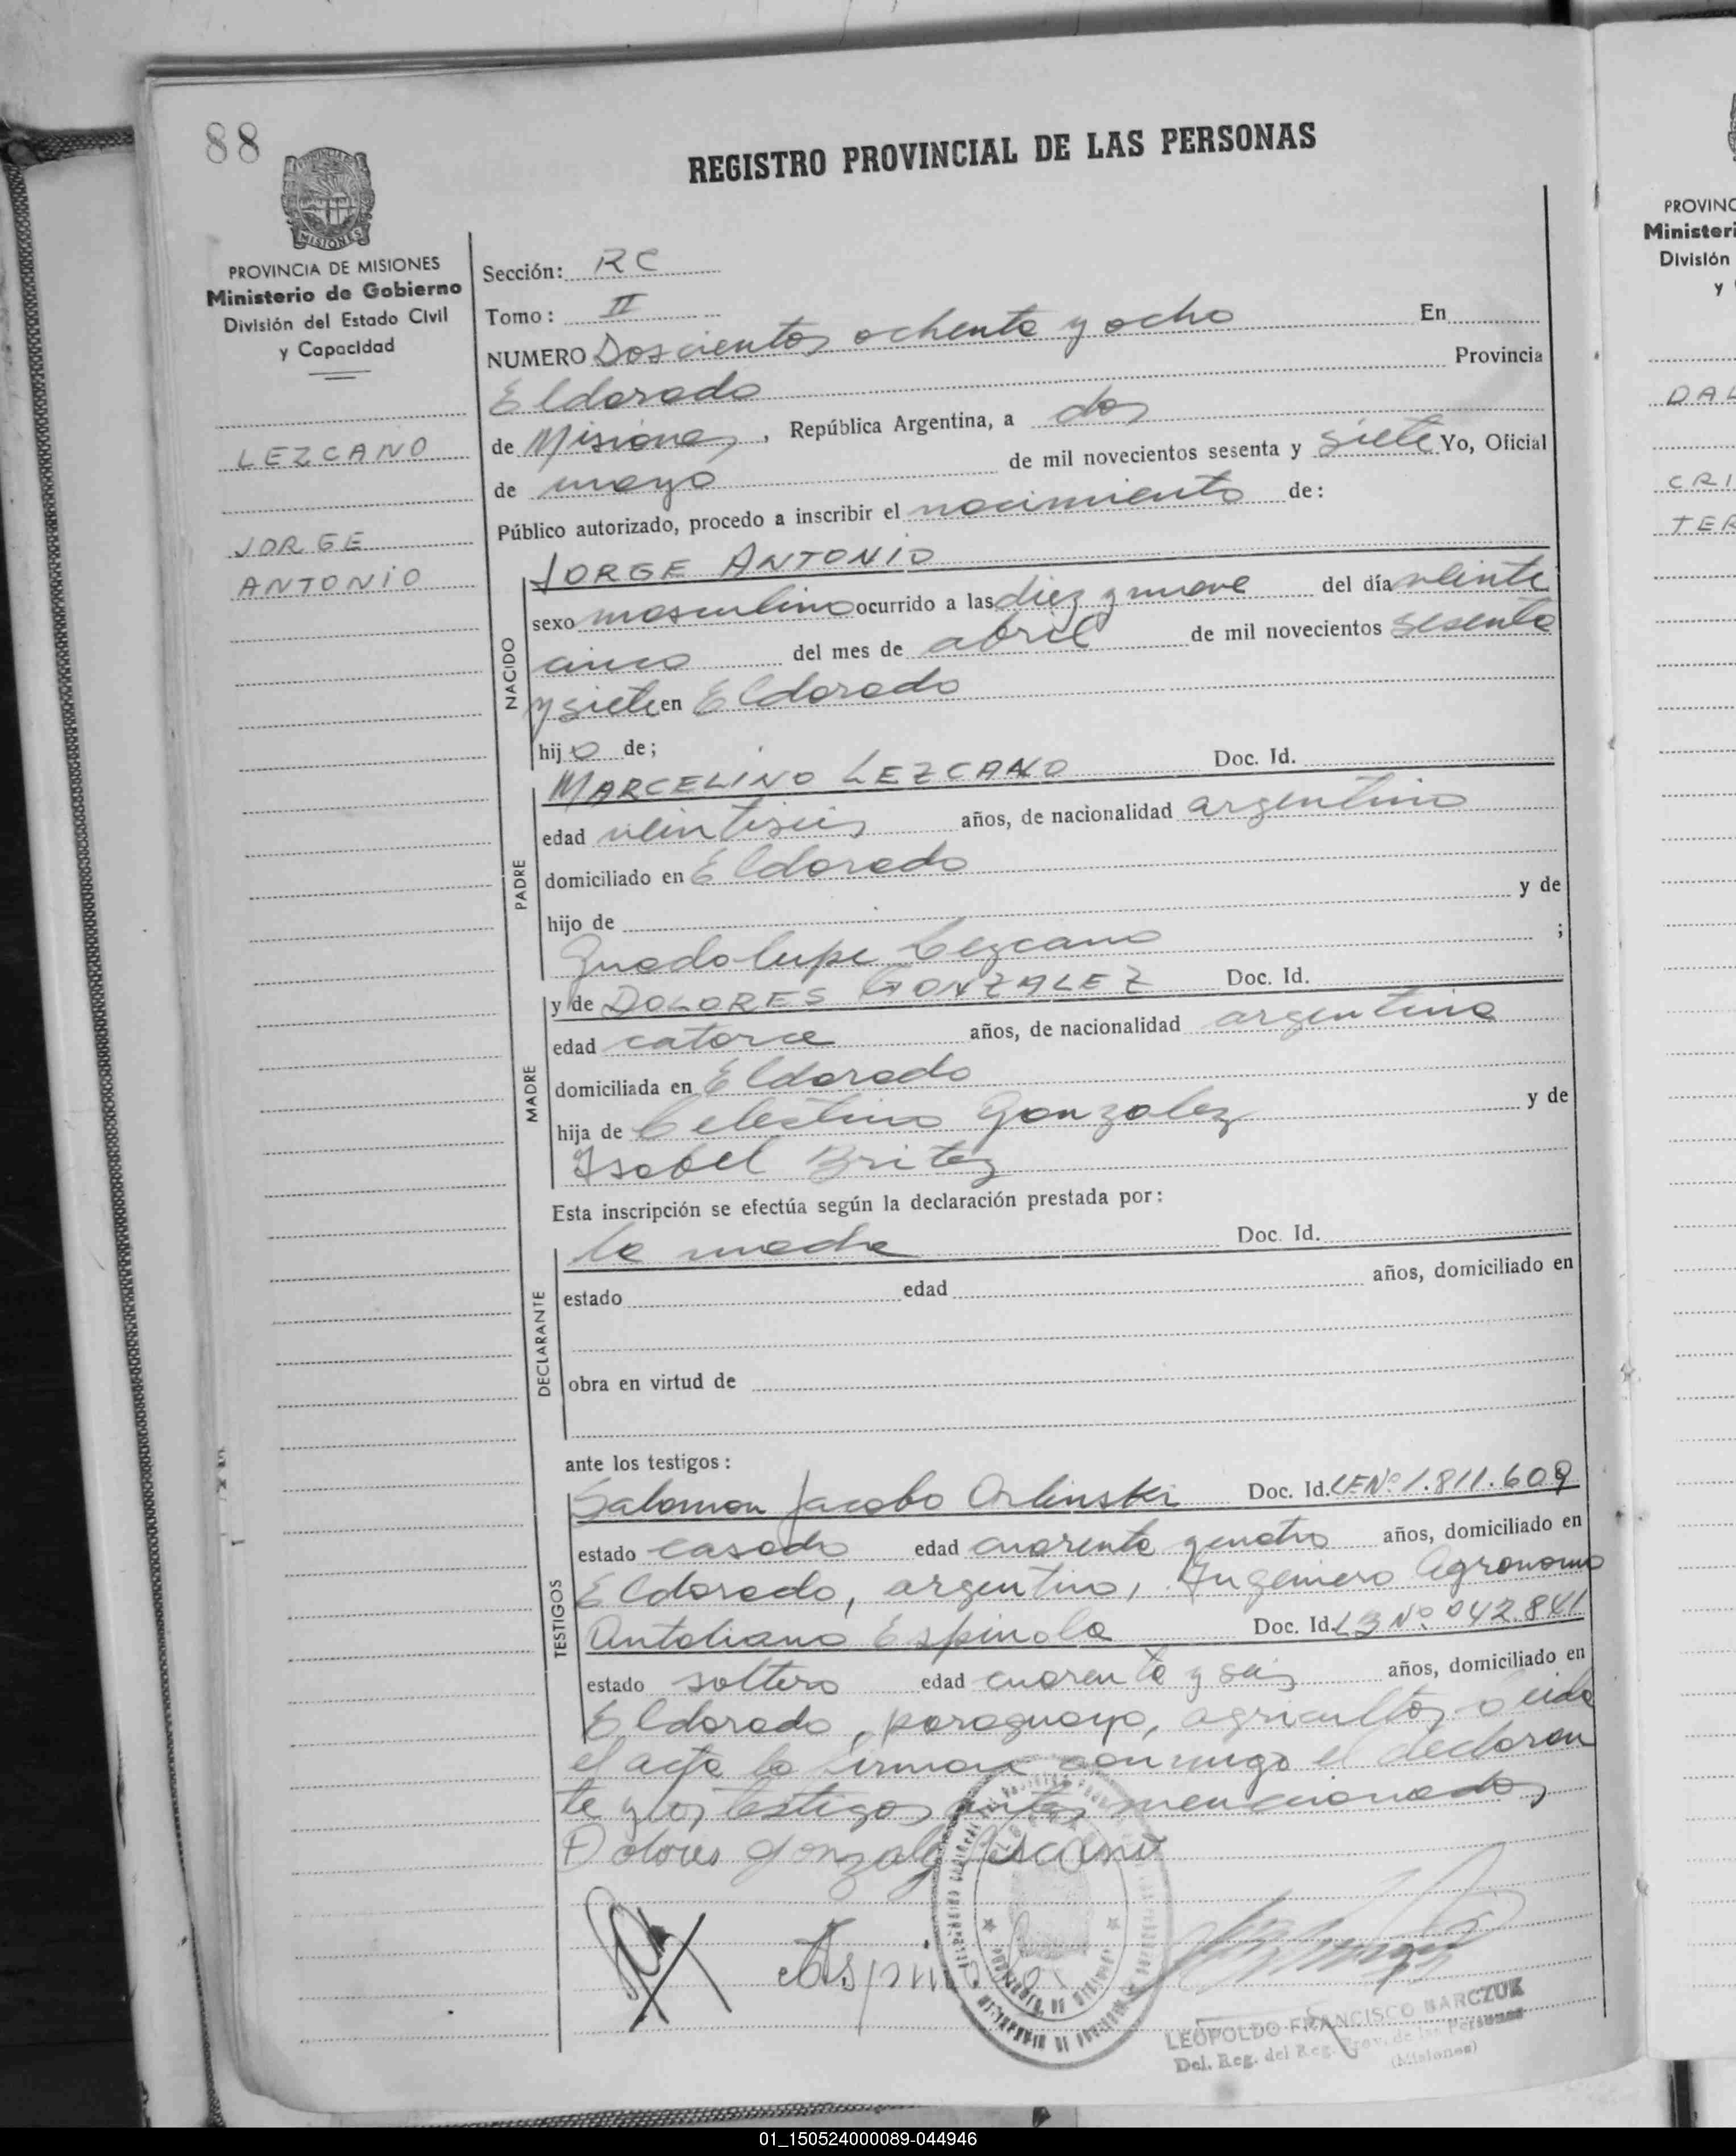 88
REGISTRO PROVINCIAL DE LAS PERSONAS
MISIONES
PROVINCIA DE MISIONES
Ministerio de Gobierno
División del Estado Civil
y Capacidad
LEZCANO
JORGE
ANTONIO
Sección: RC
Tomo: II
NUMERO Doscientos ochenta y ocho En
Eldorado Provincia
de Misiones, República Argentina, a dos
de mayo de mil novecientos sesenta y siete Yo, Oficial
Público autorizado, procedo a inscribir el nacimiento de:
NACIDO
JORGE ANTONIO
sexo masculino ocurrido a las diez y nueve del día veinte
cinco del mes de abril de mil novecientos sesenta
y siete en Eldorado
hijo de;
PADRE
MARCELINO LEZCANO Doc. Id.
edad veintiseis años, de nacionalidad argentino
domiciliado en Eldorado
hijo de y de
Guadalupe Lezcano ;
MADRE
y de DOLORES GONZALEZ Doc. Id.
edad catorce años, de nacionalidad argentina
domiciliada en Eldorado
hija de Celestino Gonzalez y de
Isabel Britez
Esta inscripción se efectúa según la declaración prestada por:
DECLARANTE
la madre Doc. Id.
estado edad años, domiciliado en
obra en virtud de
ante los testigos:
TESTIGOS
Salomon Jacobo Orlinski Doc. Id. LE Nº 1.811.609
estado casado edad cuarenta y cuatro años, domiciliado en
Eldorado, argentino, Ingeniero Agronomo
Antoliano Espinola Doc. Id. Nº 042.841
estado soltero edad cuarenta y seis años, domiciliado en
Eldorado, paraguayo, agricultor
el acta la firman conmigo el declaran
te y los testigos antes mencionados
Dolores Gonzalez
Espinola
LEOPOLDO FRANCISCO BARCZUK
Del. Reg. del Reg. Prov. de las Personas
(Misiones)
PROVINC
Ministeri
División
y
DAL
CRI
TER
01_150524000089-044946